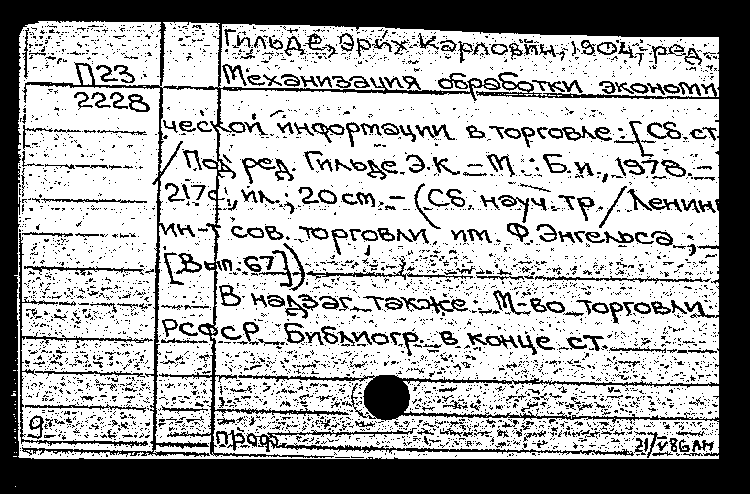 Гильде, Эрих Карлович, 1904, ред.
П23
Механизация обработки экономи
2228
ческой информации в торговле: [Сб. ст.
/ Под ред. Гильде Э.К. – М.: Б.и., 1978. –
217с., ил.; 20 см. – (Сб. науч. тр. / Ленинг
ин-т сов. торговли им. Ф. Энгельса;
[Вып. 67])
В надзаг. также: М-во торговли
РСФСР. Библиогр. в конце ст.
9
проф.
21/V 86 АН